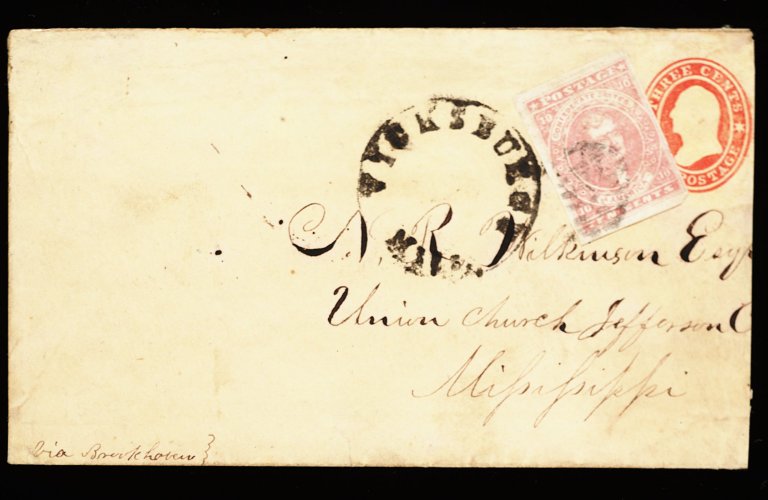 THREE CENTS
POSTAGE
POSTAGE
10 10
TEN CENTS
VICKSBURG
MISS.
N. R. Wilkinson Esqr
Union Church Jefferson C
Missisippi
via Brookhaven